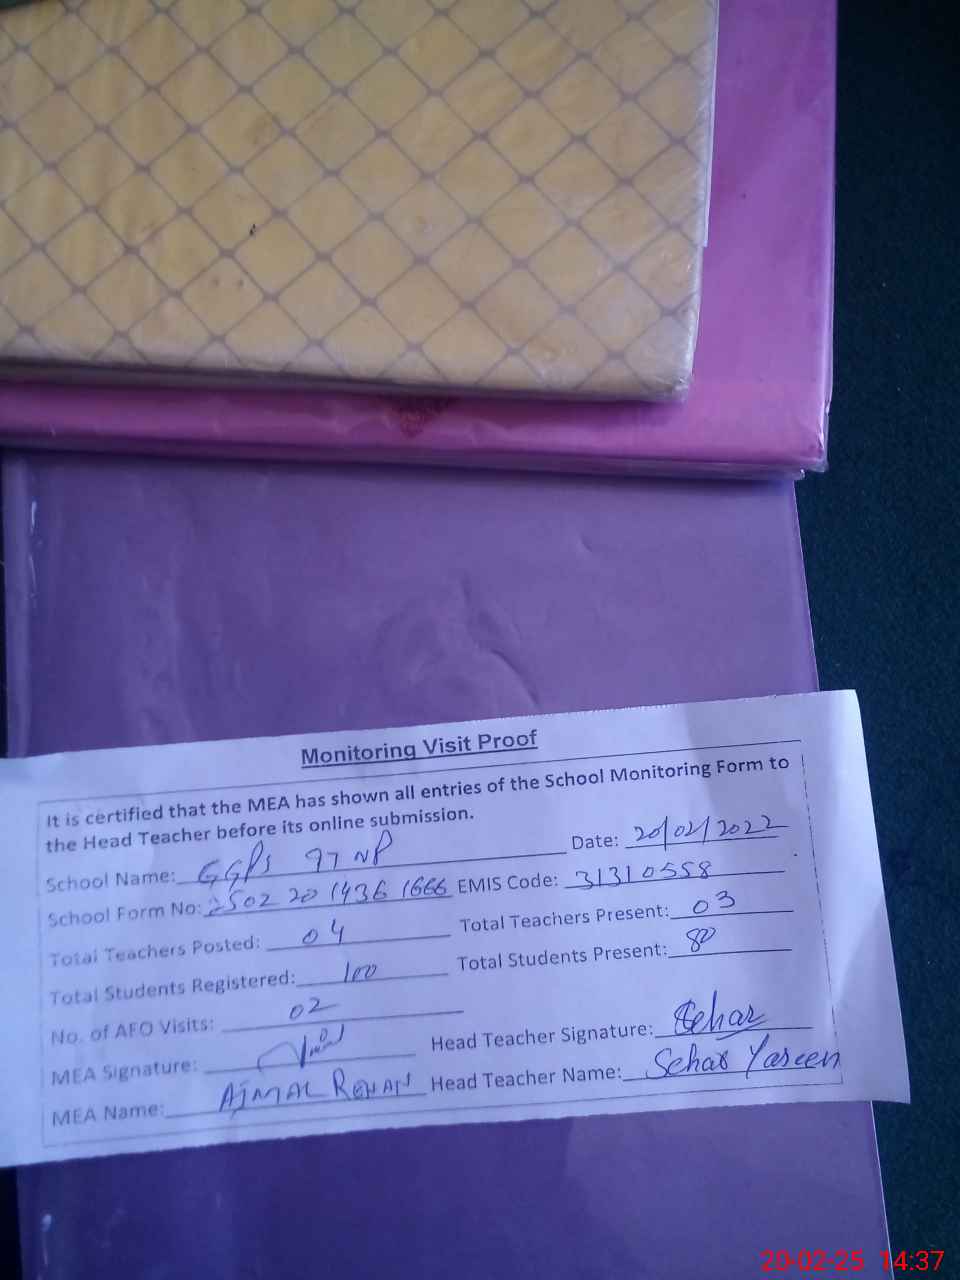 Monitoring Visit Proof
It is certified that the MEA has shown all entries of the School Monitoring Form to
the Head Teacher before its online submission.
School Name: GGPS 97 NP Date: 20/02/2022
School Form No: 2502 20 1436 1666 EMIS Code: 31310558
Total Teachers Posted: 04 Total Teachers Present: 03
Total Students Registered: 100 Total Students Present: 80
No. of AFO Visits: 02
MEA Signature: Head Teacher Signature: Sehar
MEA Name: AJMAL REHAN Head Teacher Name: Sehar Yaseen
20-02-25 14:37